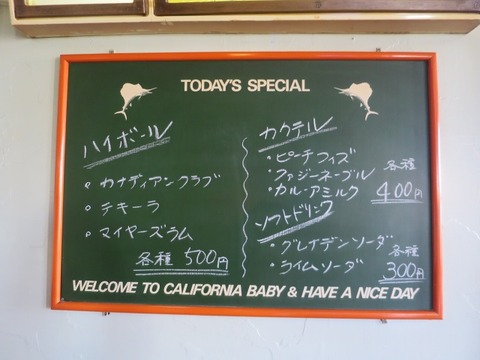 TODAY'S SPECIAL
ハイボール
・カナディアンクラブ
・テキーラ
・マイヤーズラム
各種 500円
カクテル
・ピーチフィズ
・ファジーネーブル
・カルーアミルク
各種 400円
ソフトドリンク
・グレイデンソーダ
・ライムソーダ
各種 300円
WELCOME TO CALIFORNIA BABY & HAVE A NICE DAY